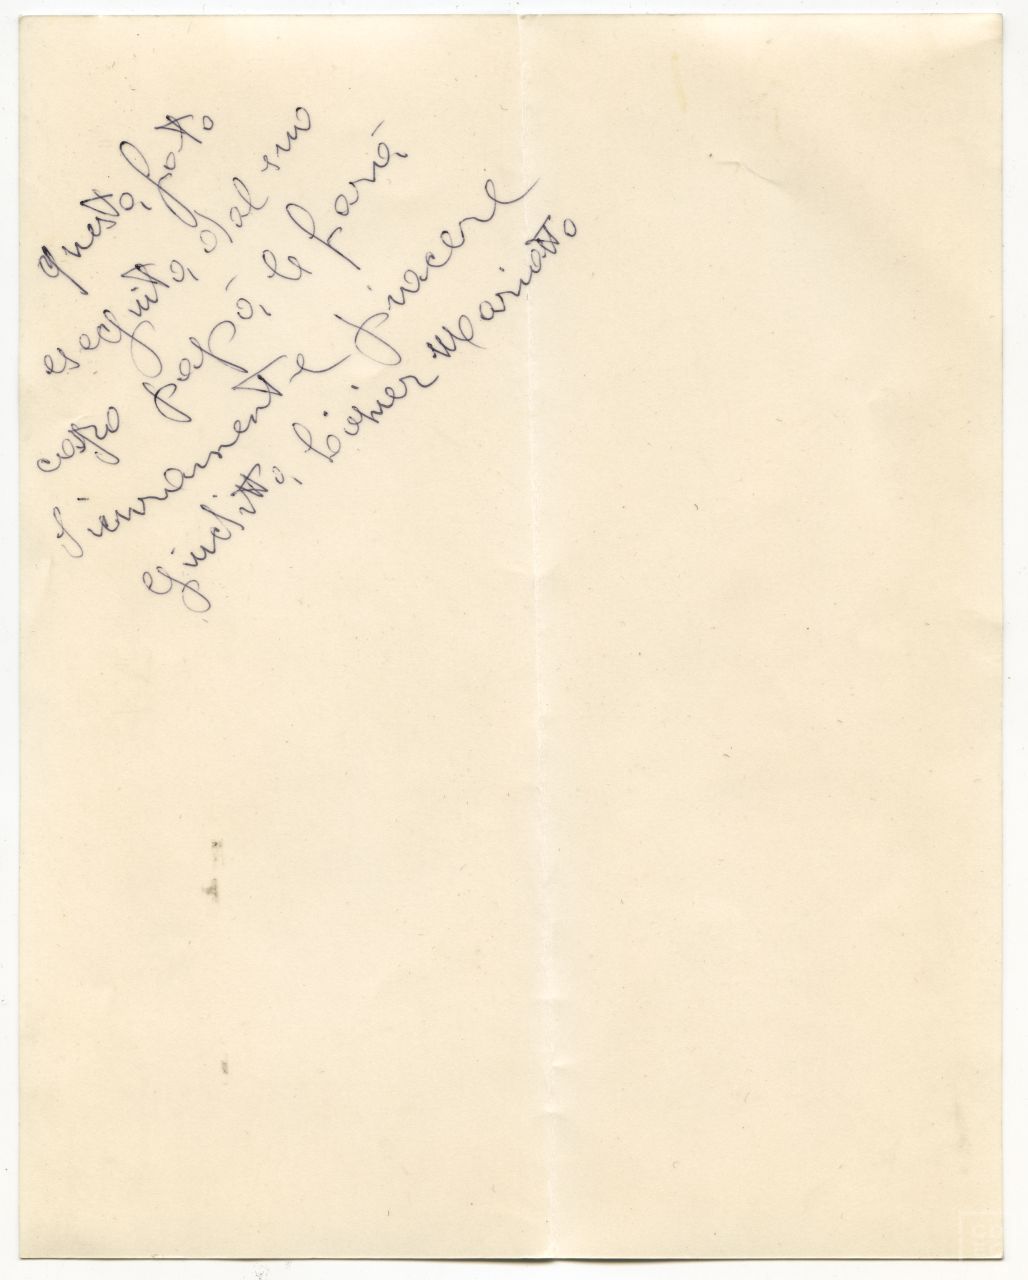 questa foto
eseguita dal suo
caro papà, le farà
sicuramente piacere
Giuditta Mariotto